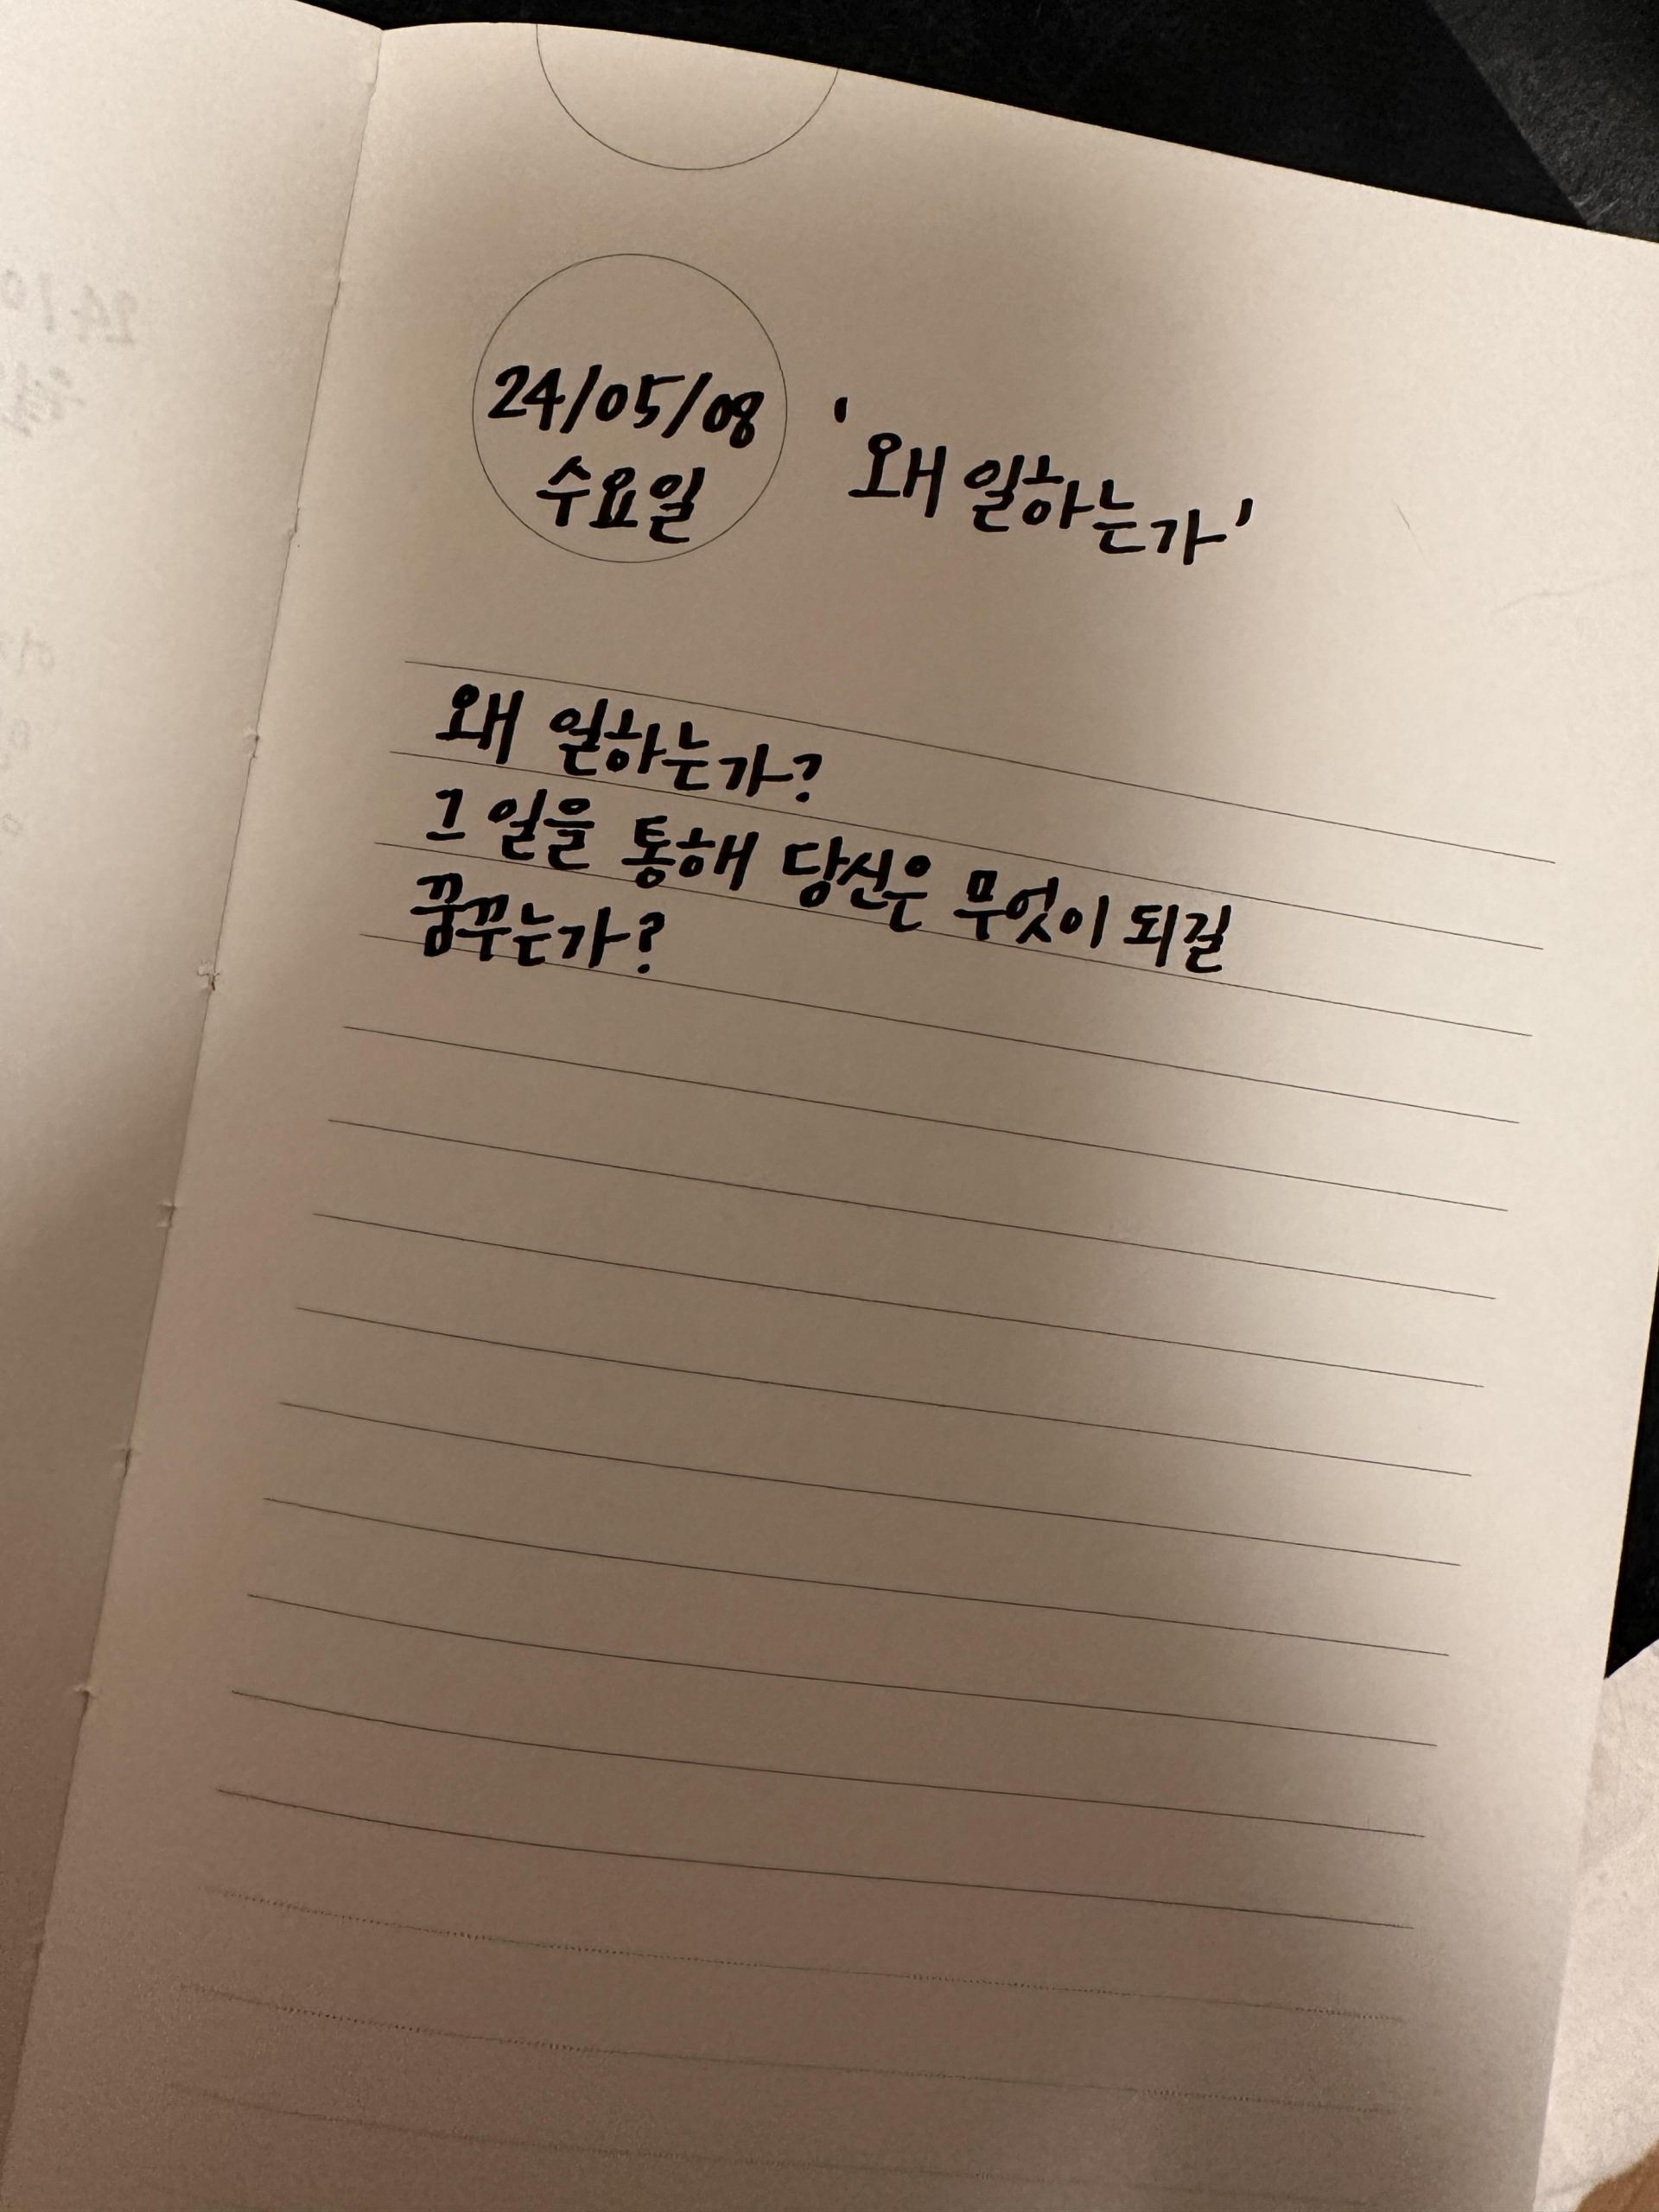 24/05/08
수요일
'왜 일하는가'
왜 일하는가?
그 일을 통해 당신은 무엇이 되길
꿈꾸는가?